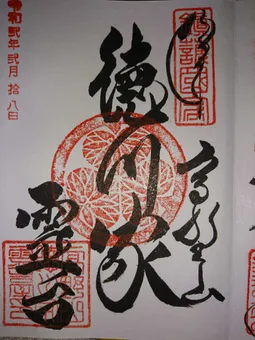 奉拝
高野山
徳川家
霊台
令和弐年弐月拾八日